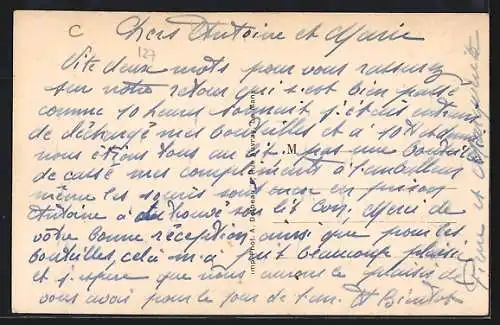 C
Chers Antoine et Marie
127
Vite deux mots pour vous rassurez
sur notre retour qui s'est bien passé
comme 10 heures sonnait j'étais entrain
de déchargé mes bouteilles et à 10 H et demi
nous étions tous au lit pas une bouteille
M
de cassé mes compliments à l'emballeur
même les souris sont en
Antoine à retrouvé son lit Merci de
votre bonne réception ainsi que pour les
bouteilles, celà m'a fait beaucoup plaisir
et j'espère que nous aurons le plaisir de
vous avoir pour le jour de l'an. A Bientot
Pierre et